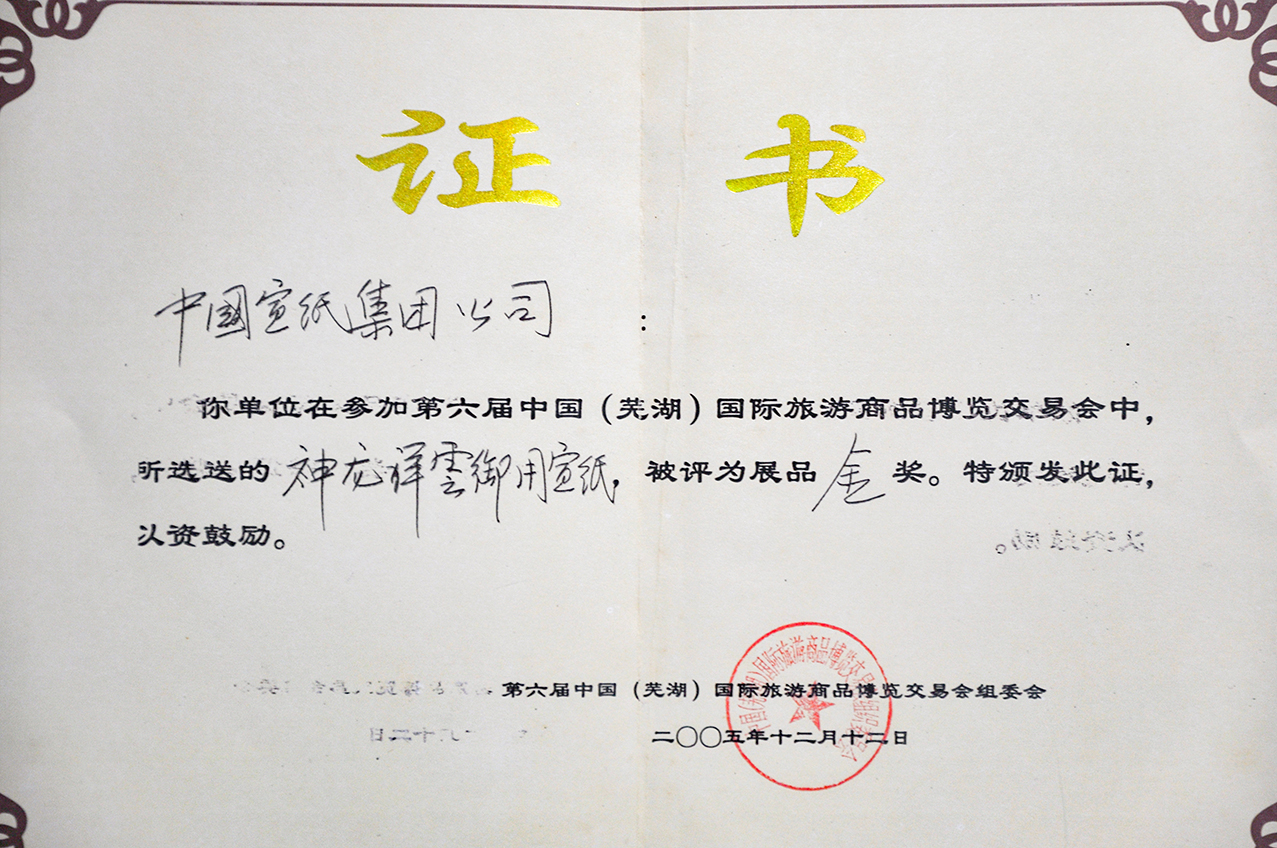 证书
中國宣纸集团公司:
你单位在参加第六届中国(芜湖)国际旅游商品博览交易会中,
所选送的神龙祥雲御用宣纸,被评为展品金奖。特颁发此证,
以资鼓励。
第六届中国(芜湖)国际旅游商品博览交易会组委会
二〇〇五年十二月十二日